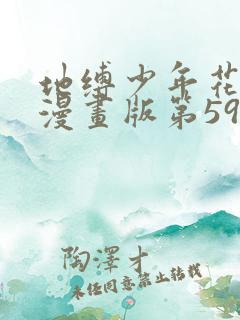 地缚少年花
漫畫版第59
陶澤才
未经同意禁止转载